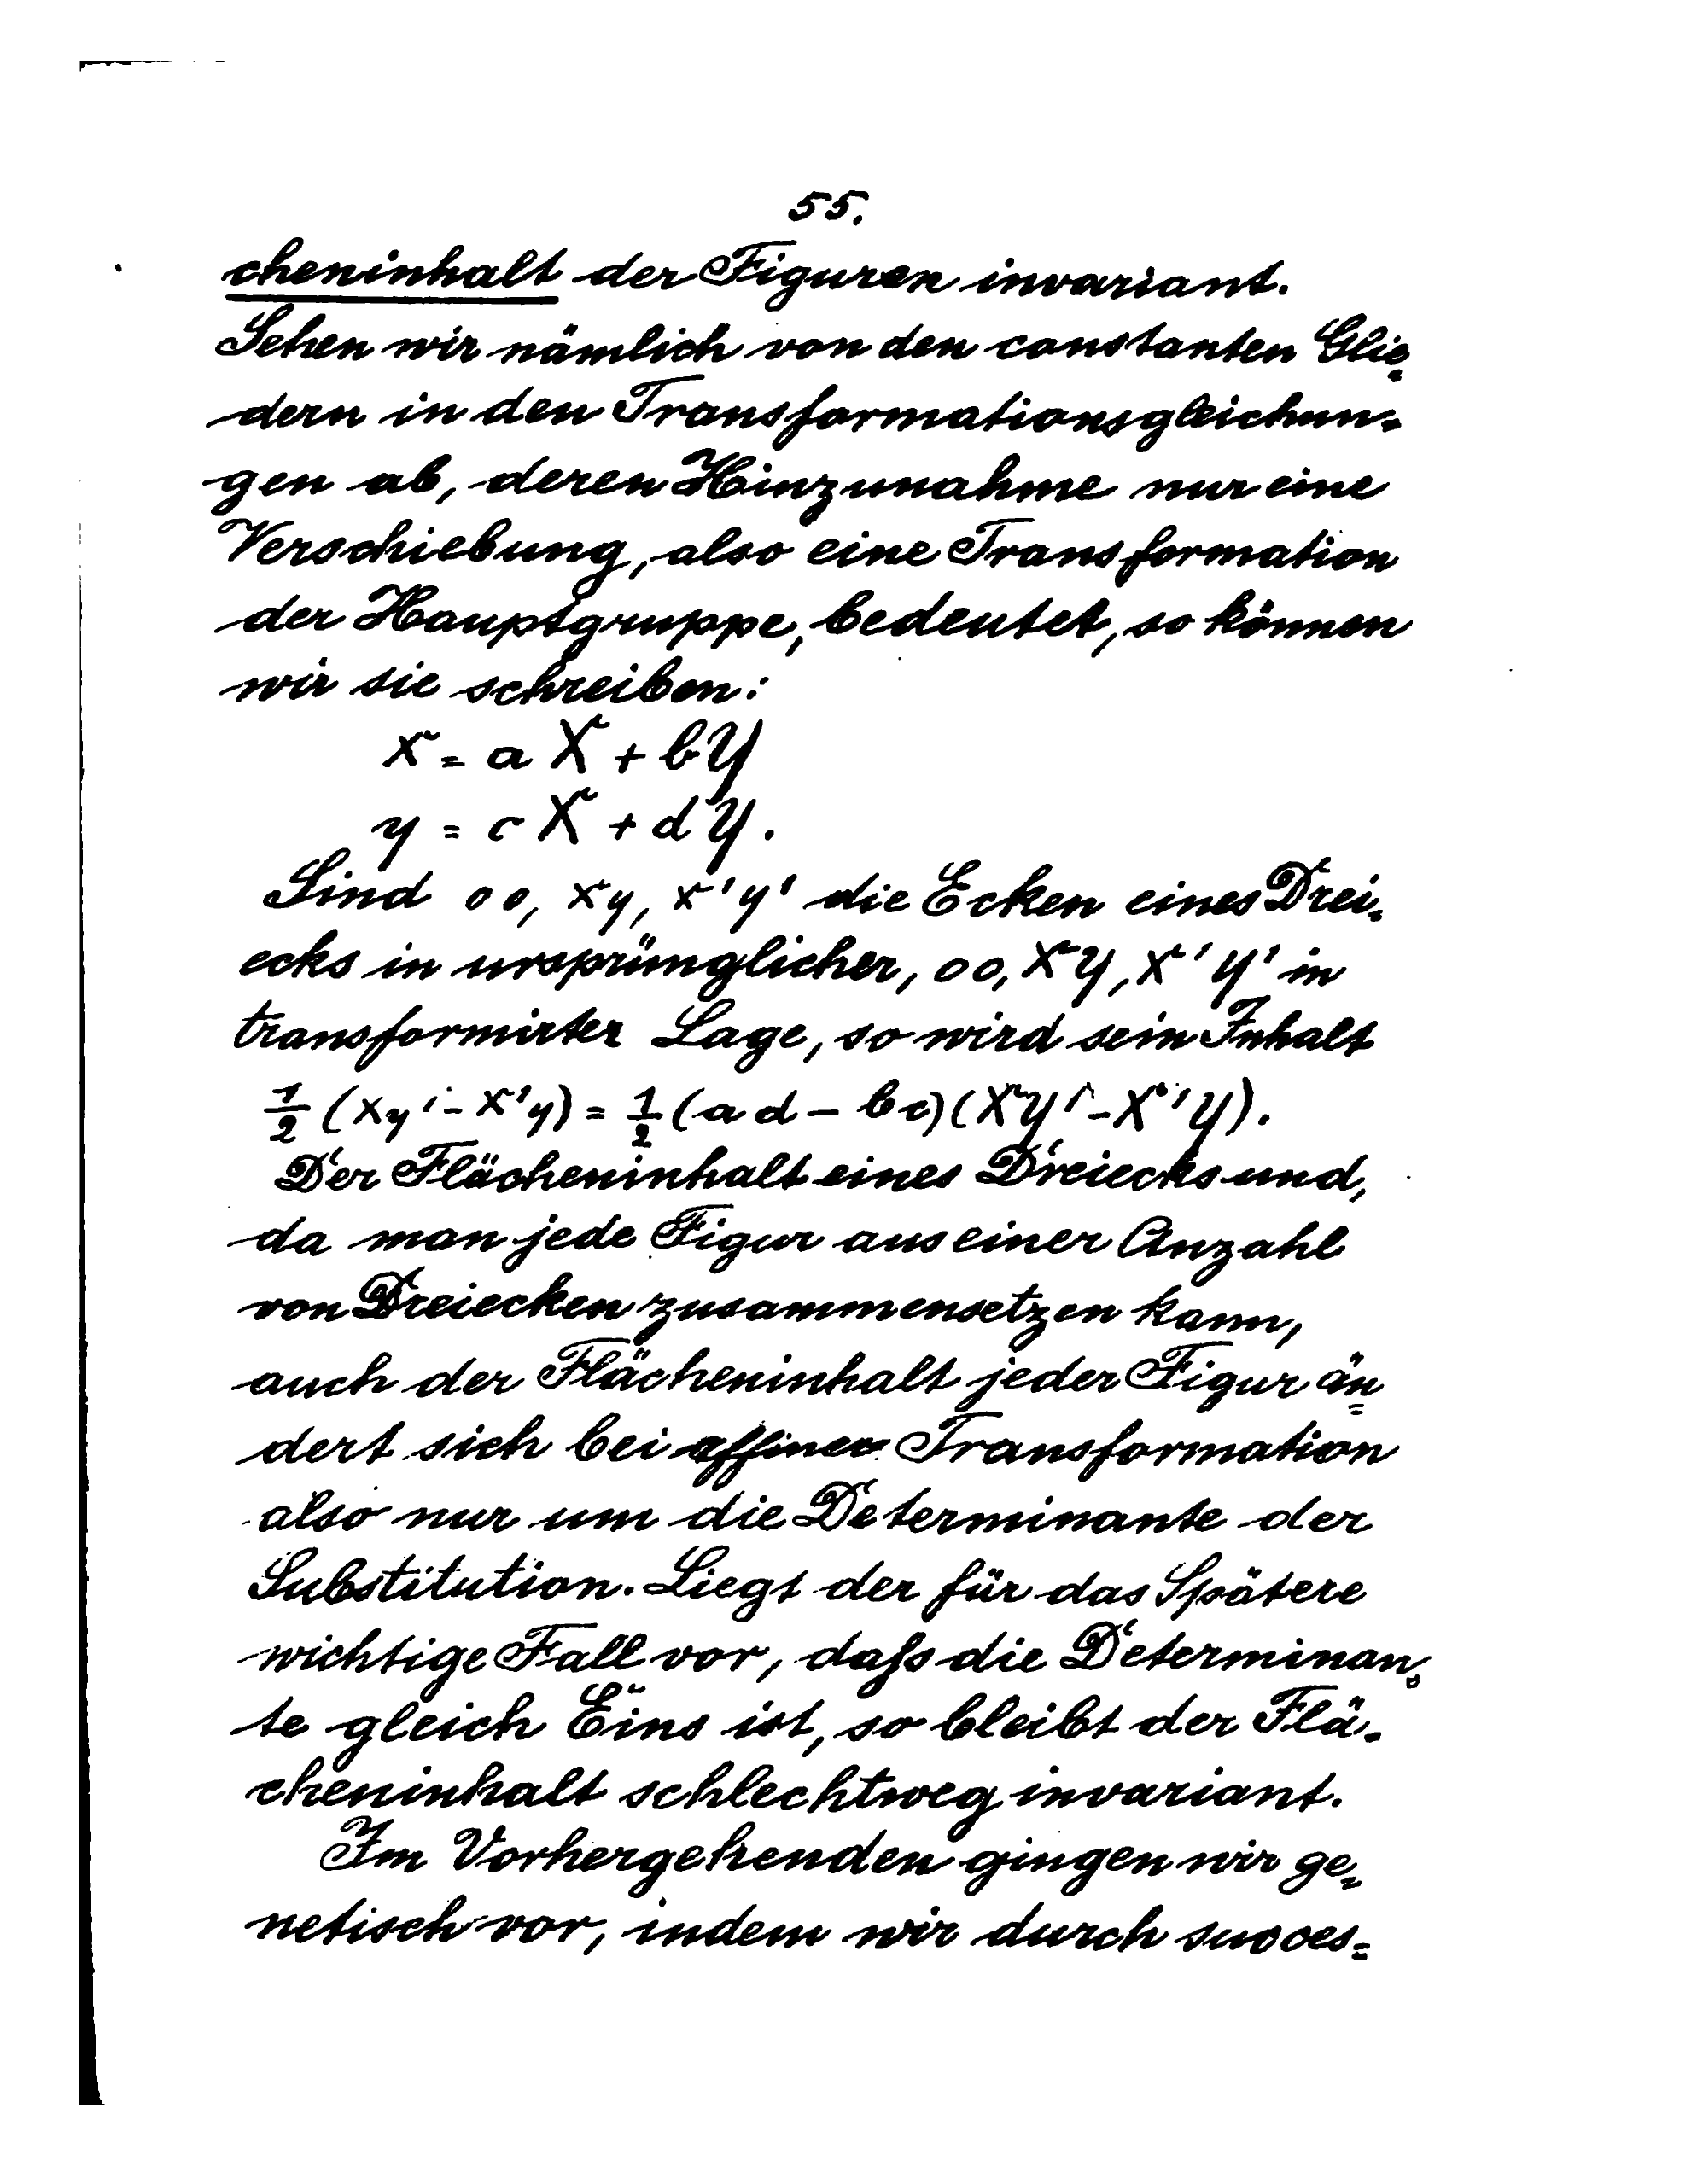 55.
cheninhalt der Figuren invariant.
Sehen wir nämlich von den constanten Glie=
dern in den Transformationsgleichun=
gen ab, deren Hinzunahme nur eine
Verschiebung, also eine Transformation
der Hauptgruppe, bedeutet, so können
wir sie schreiben:
x = a X + b Y
y = c X + d Y.
Sind 0 0, x y, x' y' die Ecken eines Drei=
ecks in ursprünglicher, 0 0, X Y, X' Y' in
transformirter Lage, so wird sein Inhalt
½ (x y' - x' y) = ½ (a d - b c) (X Y' - X' Y).
Der Flächeninhalt eines Dreiecks und,
da man jede Figur aus einer Anzahl
von Dreiecken zusammensetzen kann,
auch der Flächeninhalt jeder Figur än=
dert sich bei affiner Transformation
also nur um die Determinante der
Substitution. Liegt der für das Spätere
wichtige Fall vor, daß die Determinan=
te gleich Eins ist, so bleibt der Flä=
cheninhalt schlechtweg invariant.
Im Vorhergehenden gingen wir ge=
netisch vor, indem wir durch succes=